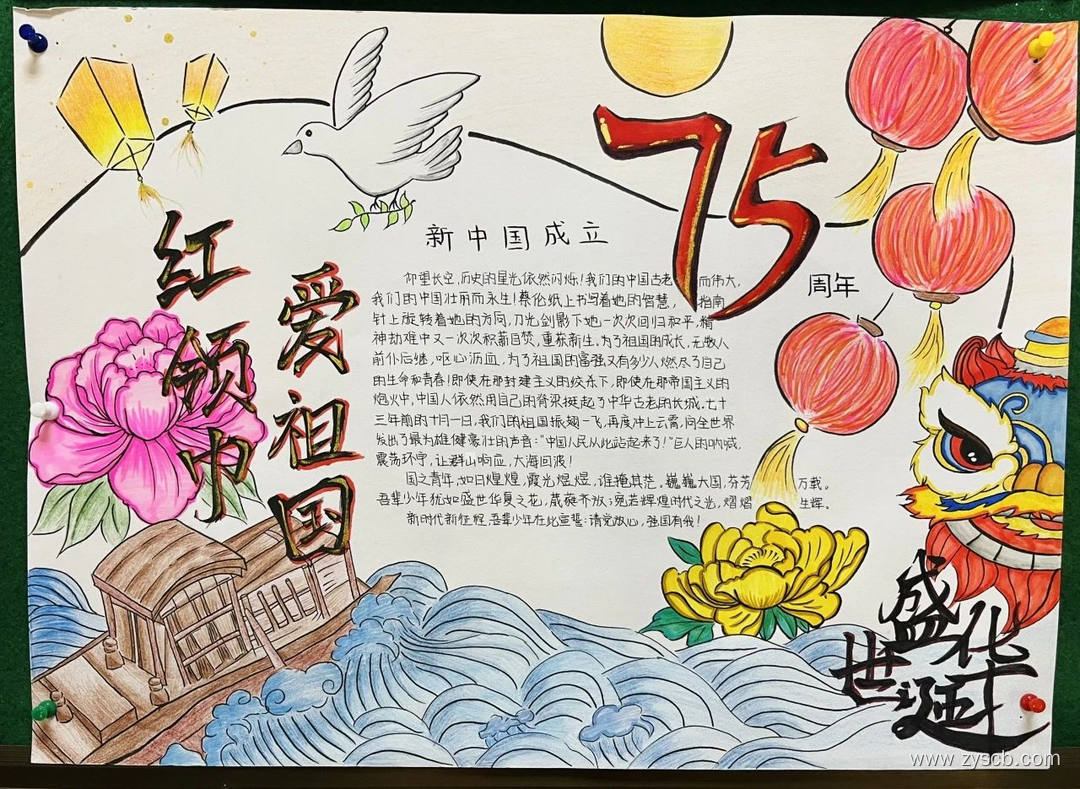 红领巾
爱祖国
75
新中国成立
周年
仰望长空,历史的星光依然闪烁!我们的中国古老 而伟大,
我们的中国壮丽而永生!蔡伦纸上书写着她的智慧, 指南
针上旋转着她的方向,刀光剑影下她一次次回归和平,精
神劫难中又一次次积薪自焚,重获新生。为了祖国的成长,无数人
前仆后继,呕心沥血,为了祖国的富强又有多少人燃尽了自己
的生命和青春!即使在那封建主义的绞杀下,即使在那帝国主义的
炮火中,中国人依然用自己的脊梁挺起了中华古老的长城。七十
三年前的十月一日,我们的祖国振翅一飞,再度冲上云霄,向全世界
发出了最为雄健豪壮的声音:“中国人民从此站起来了!”巨人的呐喊,
震荡环宇,让群山响应,大海回波!
国之青年,如日煌煌,霞光熤熤,谁掩其芒,巍巍大国,芬芳 万载。
吾辈少年犹如盛世华夏之花,葳蕤齐放;宛若辉煌时代之光,熠熠 生辉。
新时代新征程,吾辈少年在此宣誓:请党放心,强国有我!
盛世
www.zyscb.com